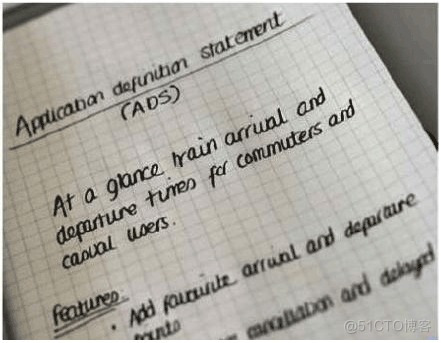 Application definition statement
(ADS)
At a glance train arrival and
departure times for commuters and
casual users.
Features:
• Add favourite arrival and departure
points
cancellation and delayed
@51CTO博客